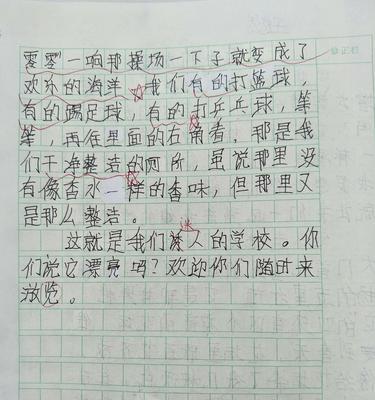 零零一响那操场一下子就变成了
欢乐的海洋。我们有的打篮球,
有的踢足球,有的打乒乓球,等
等,再往里面的右角看,那是我
们干净整洁的厕所,虽说那里没
有像香水一样的香味,但那里又
是那么整洁。
迷
这就是我们迷人的学校。你
们说它漂亮吗?欢迎你们随时来
游览。